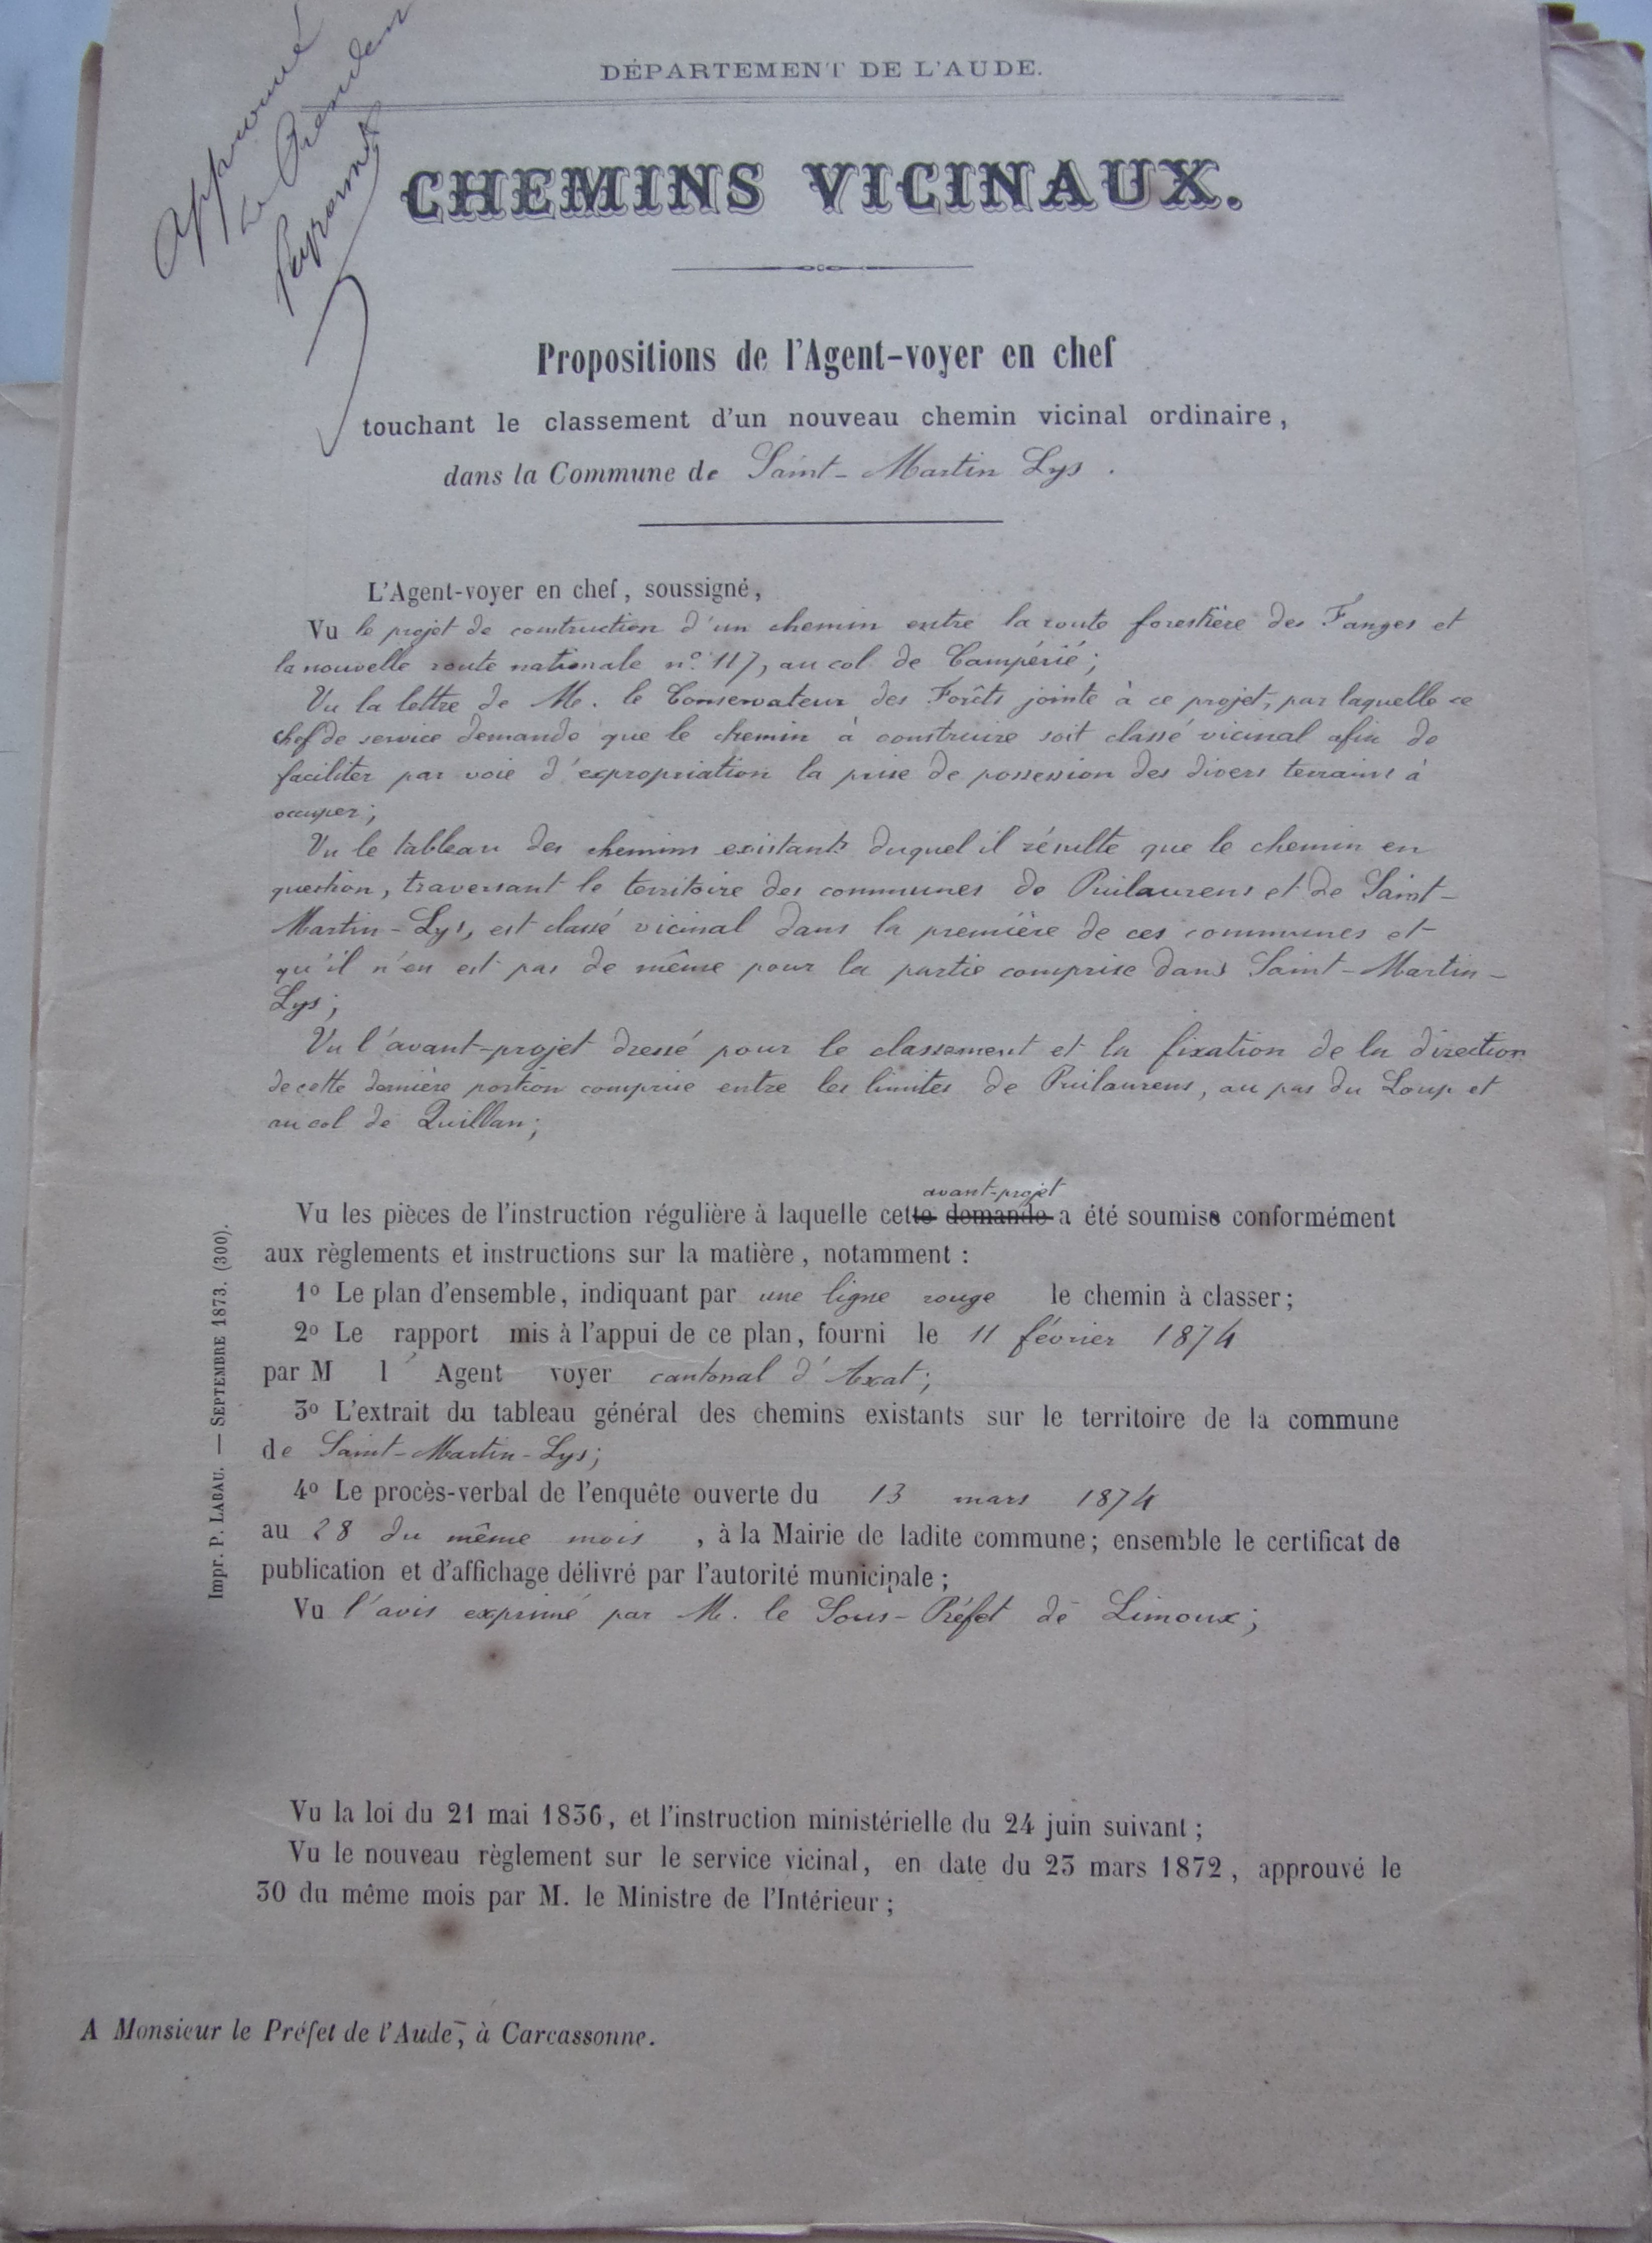 Approuvé
Le Président
DÉPARTEMENT DE L'AUDE.
CHEMINS VICINAUX.
Propositions de l'Agent-voyer en chef
touchant le classement d'un nouveau chemin vicinal ordinaire,
dans la Commune de Saint-Martin Lys.
L'Agent-voyer en chef, soussigné,
Vu le projet de construction d'un chemin entre la route forestière des Fanges et
la nouvelle route nationale n.º 117, au col de Campérié;
Vu la lettre de M. le Conservateur des Forêts jointe à ce projet, par laquelle ce
chef de service demande que le chemin à construire soit classé vicinal afin de
faciliter par voie d'expropriation la prise de possession des divers terrains à
occuper;
Vu le tableau des chemins existants duquel il résulte que le chemin en
question, traversant le territoire des communes de Puilaurens et de Saint-
Martin-Lys, est classé vicinal dans la première de ces communes et
qu'il n'en est pas de même pour la partie comprise dans Saint-Martin-
Lys;
Vu l'avant-projet dressé pour le classement et la fixation de la direction
de cette dernière portion comprise entre les limites de Puilaurens, au pas du Loup et
au col de Quillan;
avant-projet
Vu les pièces de l'instruction régulière à laquelle cette demande a été soumise conformément
aux règlements et instructions sur la matière, notamment :
1º Le plan d'ensemble, indiquant par une ligne rouge le chemin à classer;
2º Le rapport mis à l'appui de ce plan, fourni le 11 février 1874
par M l'Agent voyer cantonal d'Axat;
3º L'extrait du tableau général des chemins existants sur le territoire de la commune
de Saint-Martin-Lys;
4º Le procès-verbal de l'enquête ouverte du 13 mars 1874
au 28 du même mois, à la Mairie de ladite commune; ensemble le certificat de
publication et d'affichage délivré par l'autorité municipale;
Vu l'avis exprimé par M. le Sous-Préfet de Limoux;
Vu la loi du 21 mai 1836, et l'instruction ministérielle du 24 juin suivant;
Vu le nouveau règlement sur le service vicinal, en date du 23 mars 1872, approuvé le
30 du même mois par M. le Ministre de l'Intérieur;
A Monsieur le Préfet de l'Aude, à Carcassonne.
Impr. P. LABAU. — SEPTEMBRE 1873. (300).